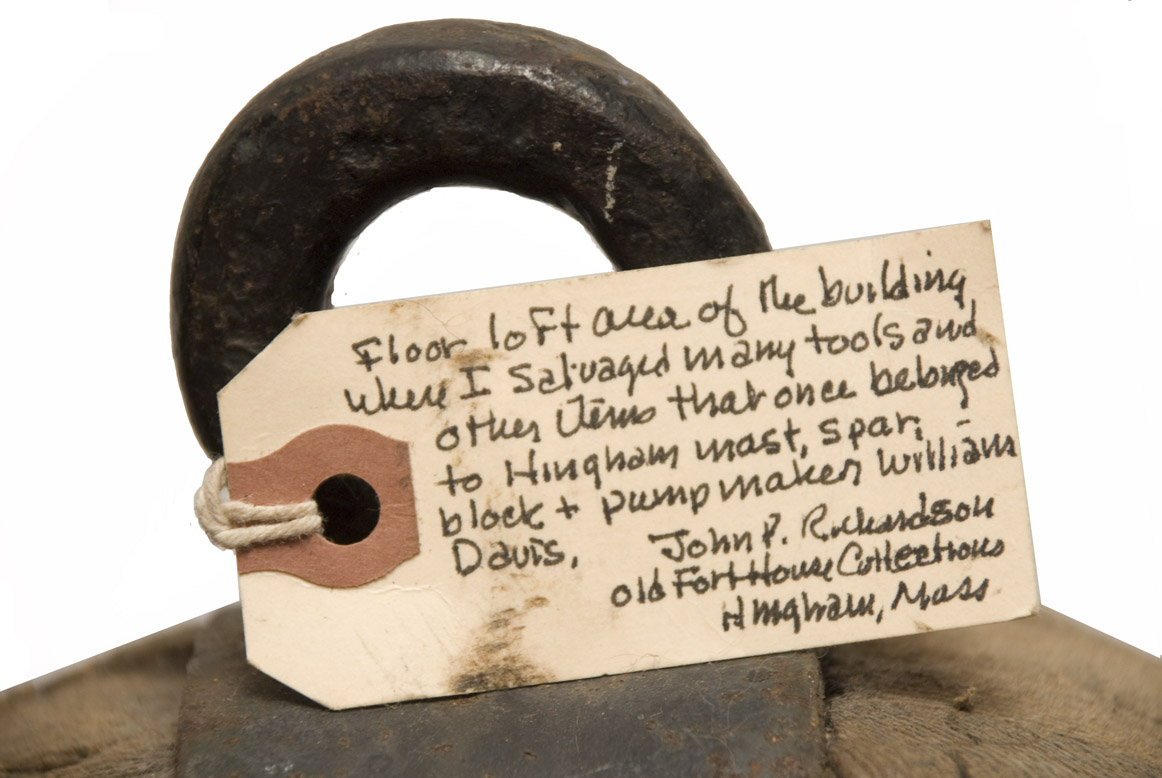 Floor loft area of the building,
where I Salvaged many tools and
other items that once belonged
to Hingham mast, spar,
block + pump maker William
Davis.
John P. Richardson
old Fort House Collections
Hingham, Mass